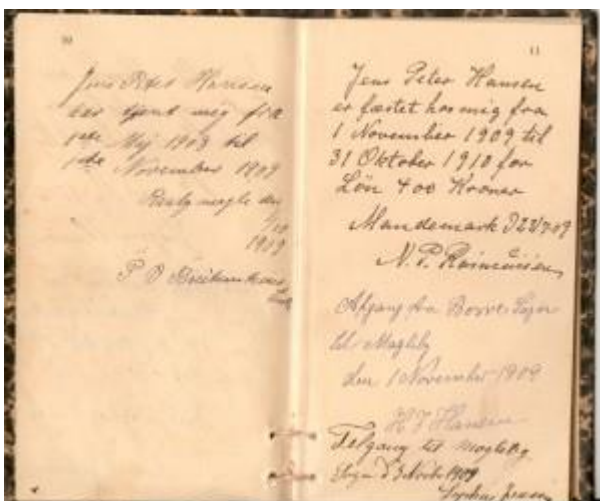 10
Jens Peter Hansen
har tjent mig fra
1ste Maj 1908 til
1ste November 1909
den
1909
P
11
Jens Peter Hansen
er fæstet hos mig fra
1 November 1909 til
31 Oktober 1910 for
Løn 400 Kroner
Mandemark D 23/7 09
N. P. Rasmussen
Afgang fra Borre Sogn
til Magleby
den 1 November 1909
H J Hansen
Tilgang til Magleby
Sogn d 3 Novbr 1909
Jensen